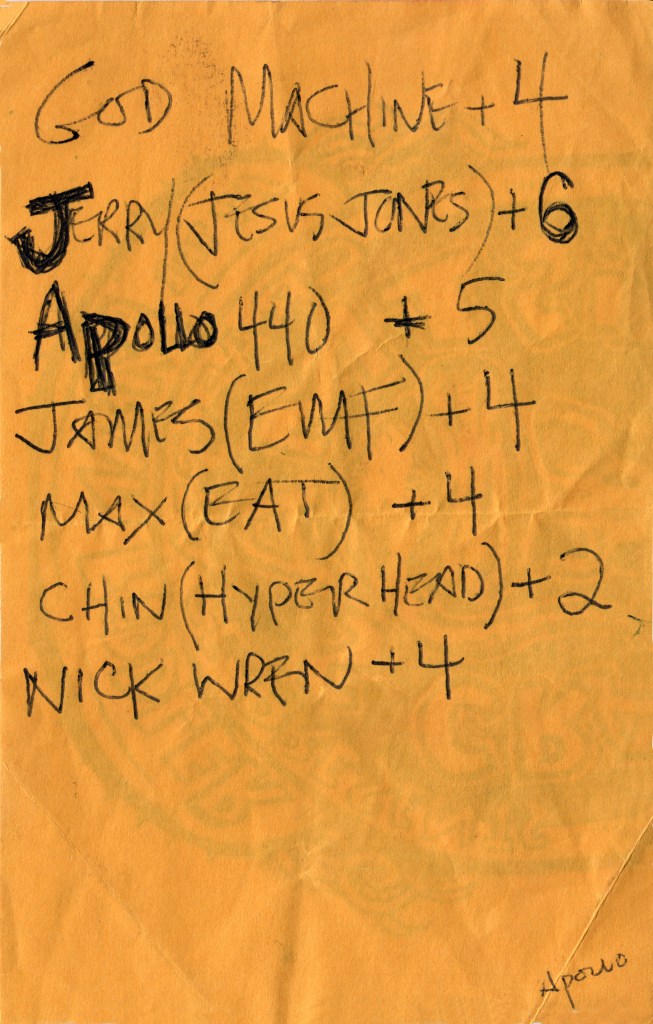 GOD MACHINE + 4
JERRY (JESUS JONES) + 6
APOLLO 440 + 5
JAMES (EMF) + 4
MAX (EAT) + 4
CHIN (HYPERHEAD) + 2
NICK WREN + 4
Apollo